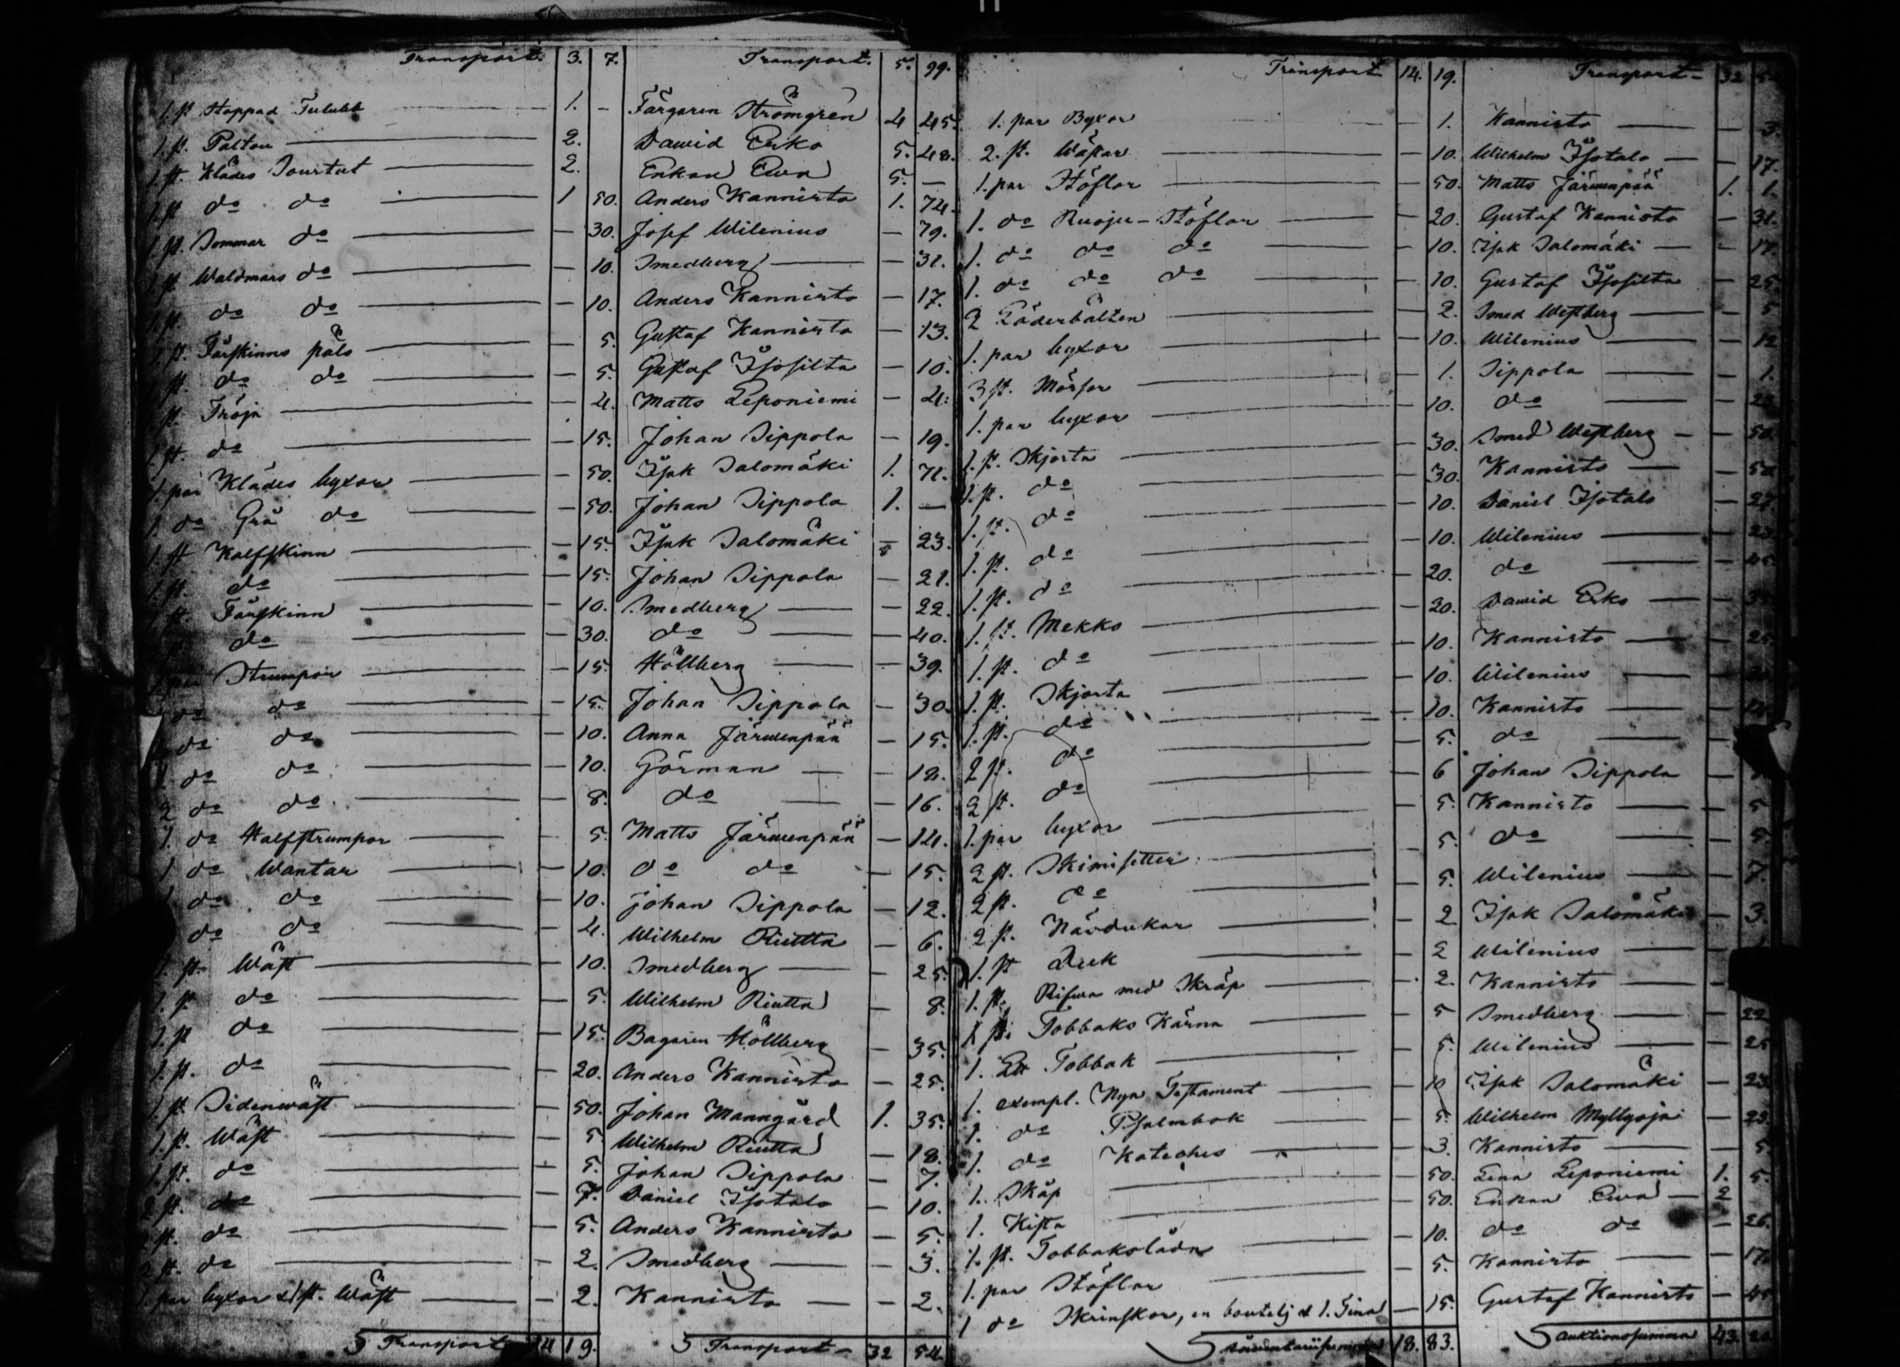 Transport. 3. 7. Transport. 5. 99.
1. st. Stoppad Tulubb 1. – Färgaren Strömgren 4 45.
1. st. Paltou 2. Dawid Erko 5. 48.
1. st. Klädes Sourtut 2. Enkan Ewa 5. –
1. st do do 1 50. Anders Kannisto 1. 74.
1. st. Sommar do – 30. Josef Wilenius – 79.
1. st Waldmars do – 10. Smedberg – 31.
1. st. do do – 10. Anders Kannisto – 17.
1. st. Fårskinns päls – 5. Gustaf Kannisto – 13.
1. st. do do – 5. Gustaf Isosilta – 10.
1. st. Tröja – 4. Matts Leponiemi – 4.
1. st. do – 15. Johan Sippola – 19.
1. par Klädes byxor – 50. Isak Salomäki 1. 71.
1. do Grå do – 50. Johan Sippola 1. –
1. st Kalfskinn – 15. Isak Salomäki – 23.
1. st. do – 15. Johan Sippola – 21.
1. st. Fårskinn – 10. Smedberg – 22.
do – 30. do – 40.
Strumpor – 15. Höllberg – 39.
do do – 15. Johan Sippola – 30.
do do – 10. Anna Järwenpää – 15.
1. do do – 10. Görman – 18.
2 do do – 8. do – 16.
1. do Halfstrumpor – 5. Matts Järwenpää – 14.
1 do Wantar – 10. do do – 15.
1. do do – 10. Johan Sippola – 12.
do do – 4. Wilhelm Riutta – 6.
1. st. Wäst – 10. Smedberg – 25.
1. st. do – 5. Wilhelm Riutta – 8.
1. st do – 15. Bagaren Höllberg – 35.
1. st. do – 20. Anders Kannisto – 25.
1. st Sidenwäst – 50. Johan Manngård 1. 35.
1. st. Wäst – 5 Wilhelm Riutta – 18.
1. st. do – 5. Johan Sippola – 7.
2 st. do – 7. Daniel Isotalo – 10.
st. do – 5. Anders Kannisto – 5.
st. do – 2. Smedberg – 3.
1. par byxor & 1 st. Wäst – 2. Kannisto – 2.
S Transport 14 19. S Transport 32 54.
Transport 14. 19. Transport 32
1. par Byxor – 1. Kannisto – 3.
2. st. Wäskar – 10. Wilhelm Isotalo – 17.
1. par Stöflor – 50. Matts Järwenpää 1. 1.
1. do Ruoju-Stöflor – 20. Gustaf Kannisto – 31.
1. do do do – 10. Isak Salomäki – 17.
1. do do do – 10. Gustaf Isosilta – 25.
2 Läderbälten – 2. Smed Westberg – 5
1. par byxor – 10. Wilenius – 12
3 st. Mössor – 1. Sippola – 1.
1. par byxor – 10. do – 23
1. st. Skjorta – 30. Smed Westberg – 50.
1. st. do – 30. Kannisto – 50
1. st. do – 10. Daniel Isotalo – 27
1. st. do – 10. Wilenius – 23
1. st. do – 20. do – 45.
1. st. Mekko – 20. Dawid Erko –
1. st. do – 10. Kannisto – 25
1. st. Skjorta – 10. Wilenius –
1. st. do – 10. Kannisto –
2 st. do – 5. do –
2 st. do – 6 Johan Sippola –
1. par byxor – 5. Kannisto – 5
2 st. Skimisetter – 5. do – 5.
2 st. do – 5. Wilenius – 7.
2 st. Näsdukar – 2 Isak Salomäki – 3.
1. st Duk – 2 Wilenius –
1. st. med Skråp – 2. Kannisto –
1 st. Tobbaks Kärna – 5 Smedberg – 22
1. Tobbak – 5. Wilenius – 25
1. exempl. Nya Testament – 10 Isak Salomäki – 23
1. do Psalmbok – 5. Wilhelm Myllyoja – 23.
1. do Kateches – 3. Kannisto – 5.
1. Skåp – 50. Lena Leponiemi 1. 5.
1. Kista – 50. Enkan Ewa – 2
1. st. Tobbakslåda – 10. do do – 26.
1. par Stöflor – 5. Kannisto – 17.
1 do Skrinskor, en boutelj & 1. – 15. Gustaf Kannisto – 45
S 18. 83. S auktionssumma 43.